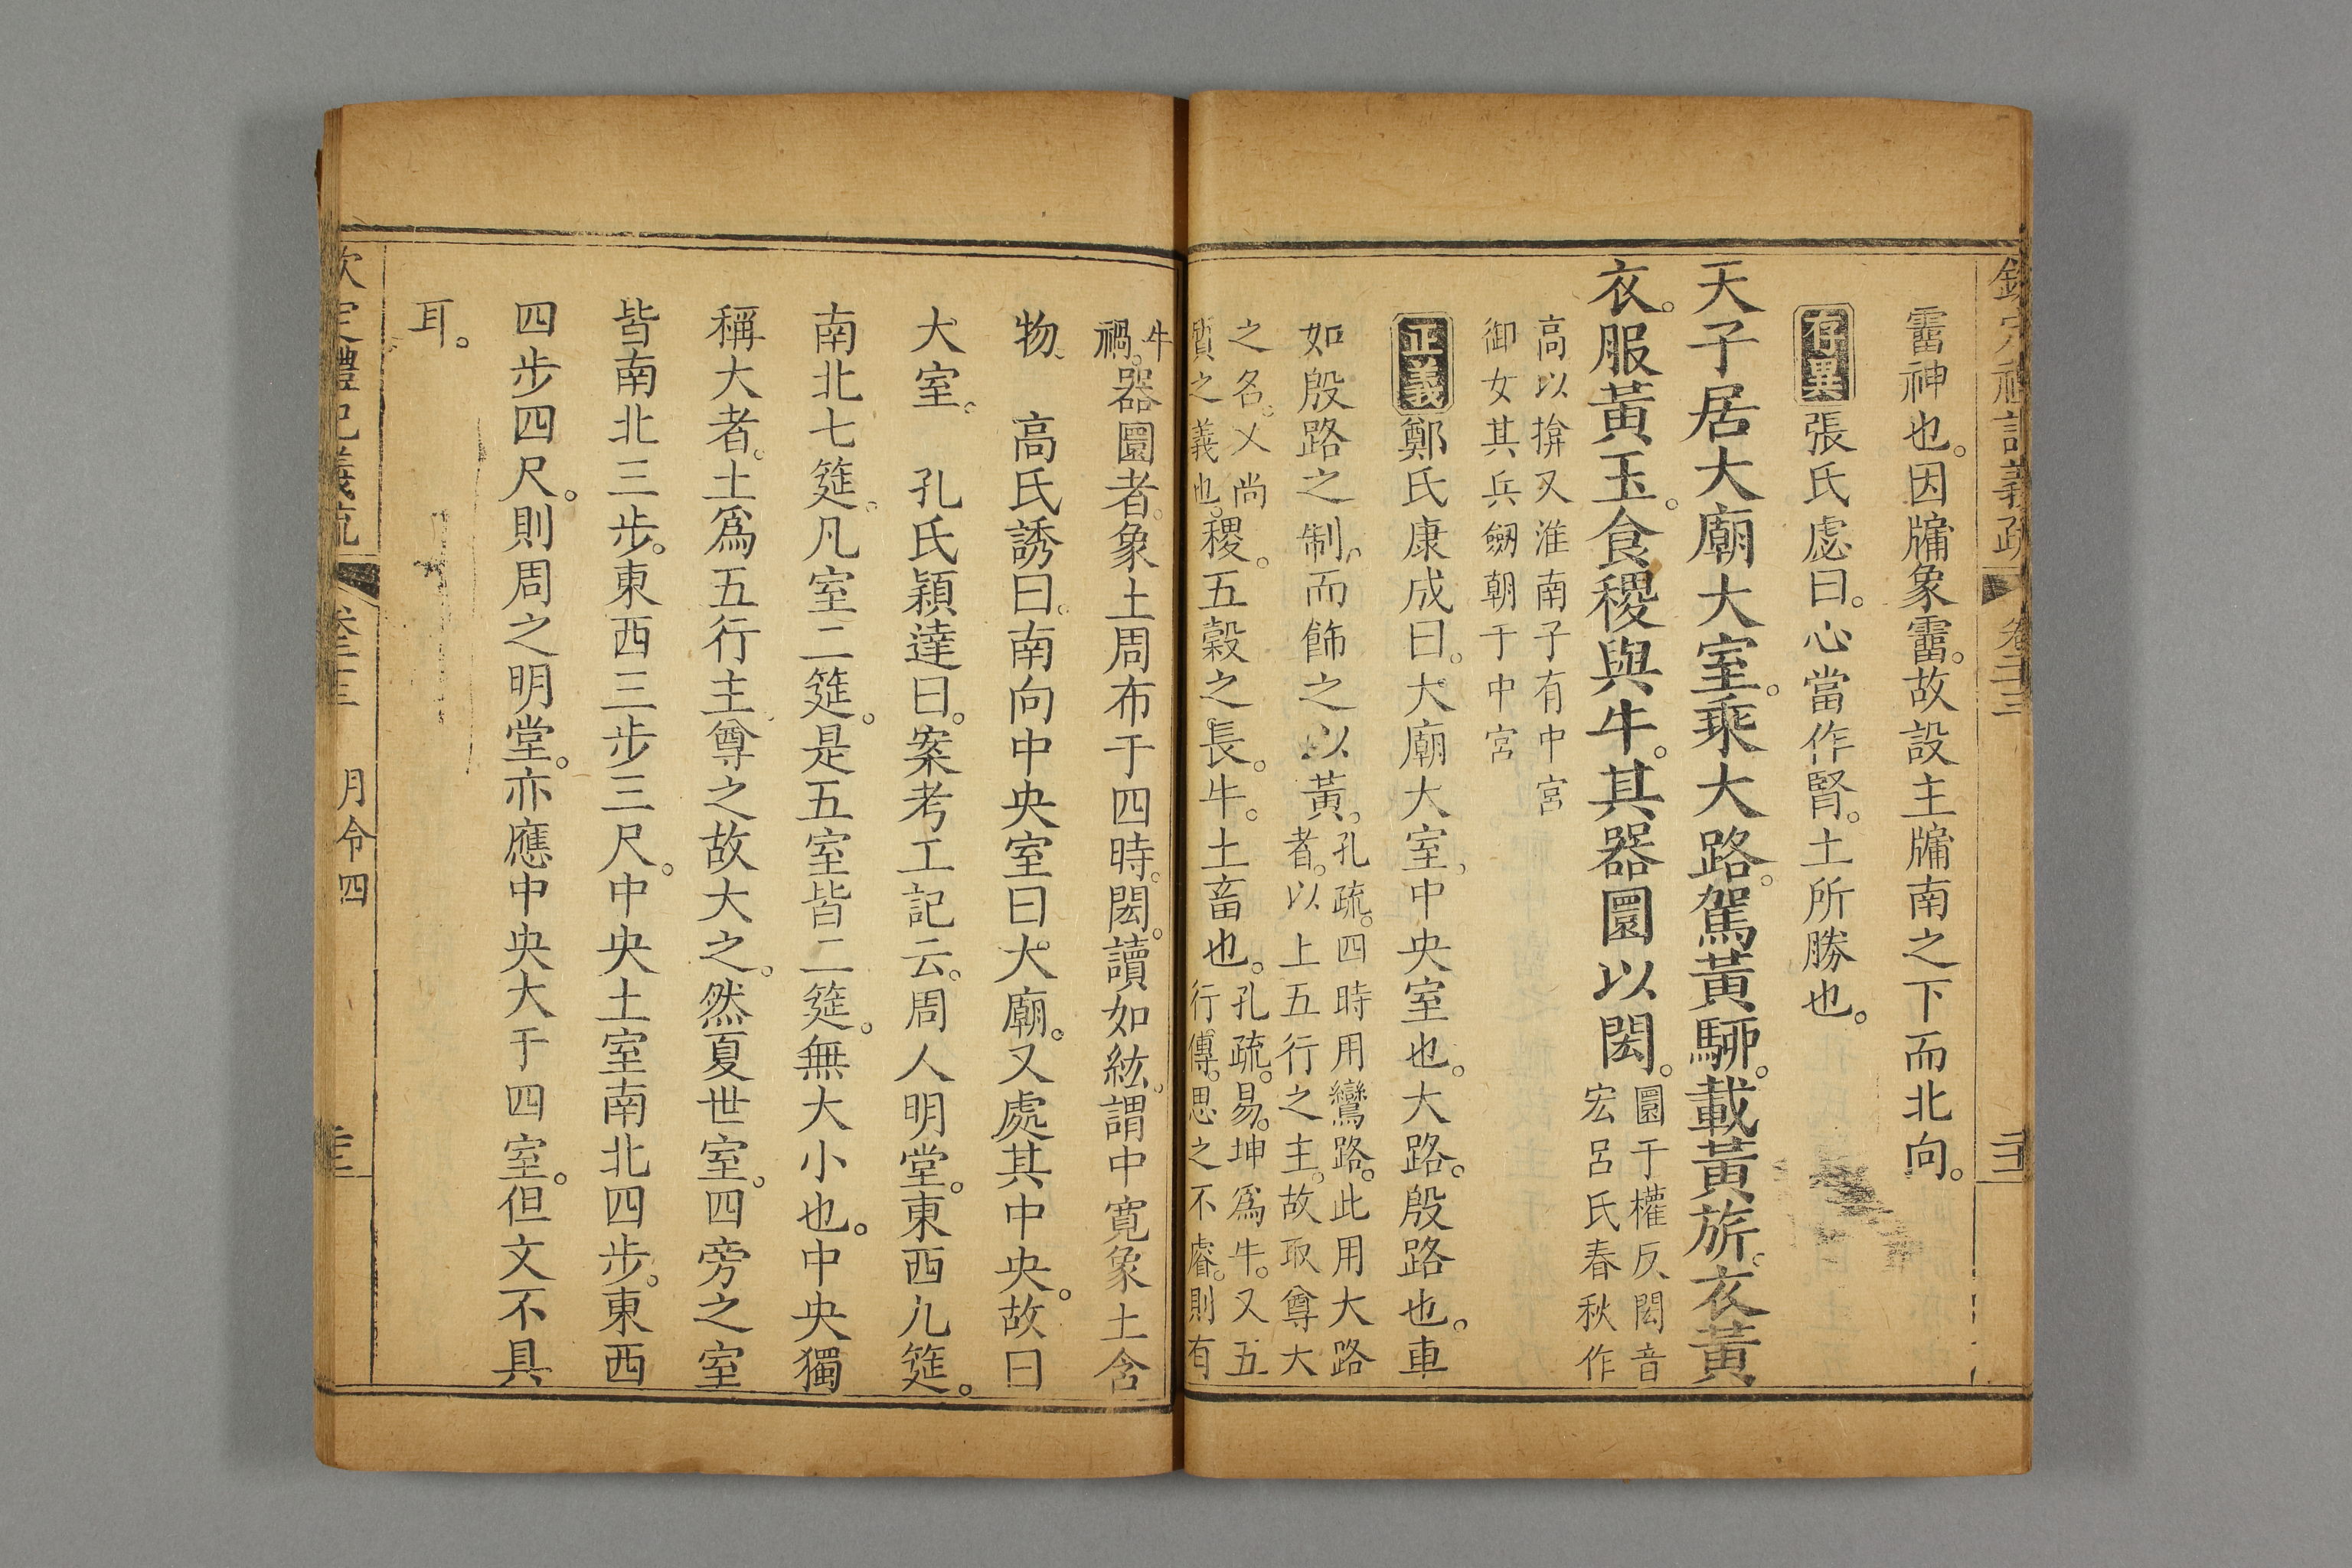 欽定禮記義疏 卷二十三
霤神也。因牖象霤。故設主牖南之下而北向。
存異 張氏虙曰。心當作腎。土所勝也。
天子居大廟大室。乘大路。駕黃駵。載黃旂。衣黃
衣。服黃玉。食稷與牛。其器圜以閎。圜于權反閎音宏呂氏春秋作
高以揜又淮南子有中宮御女其兵劒朝于中宮
正義 鄭氏康成曰。大廟大室。中央室也。大路。殷路也。車
如殷路之制。而飾之以黃。孔疏。四時用鸞路。此用大路者。以上五行之主。故取尊大
之名。又尚質之義也。稷。五穀之長。牛。土畜也。孔疏。易。坤爲牛。又五行傳。思之不睿。則有
牛禍。器圜者。象土周布于四時。閎。讀如紘。謂中寬象土含
物。 高氏誘曰。南向中央室曰大廟。又處其中央。故曰
大室。 孔氏穎達曰。案考工記云。周人明堂。東西九筵。
南北七筵。凡室二筵。是五室皆二筵。無大小也。中央獨
稱大者。土爲五行主。尊之故大之。然夏世室。四旁之室
皆南北三步。東西三步三尺。中央土室南北四步。東西
四步四尺。則周之明堂。亦應中央大于四室。但文不具
耳。
欽定禮記義疏 卷二十三 月令四